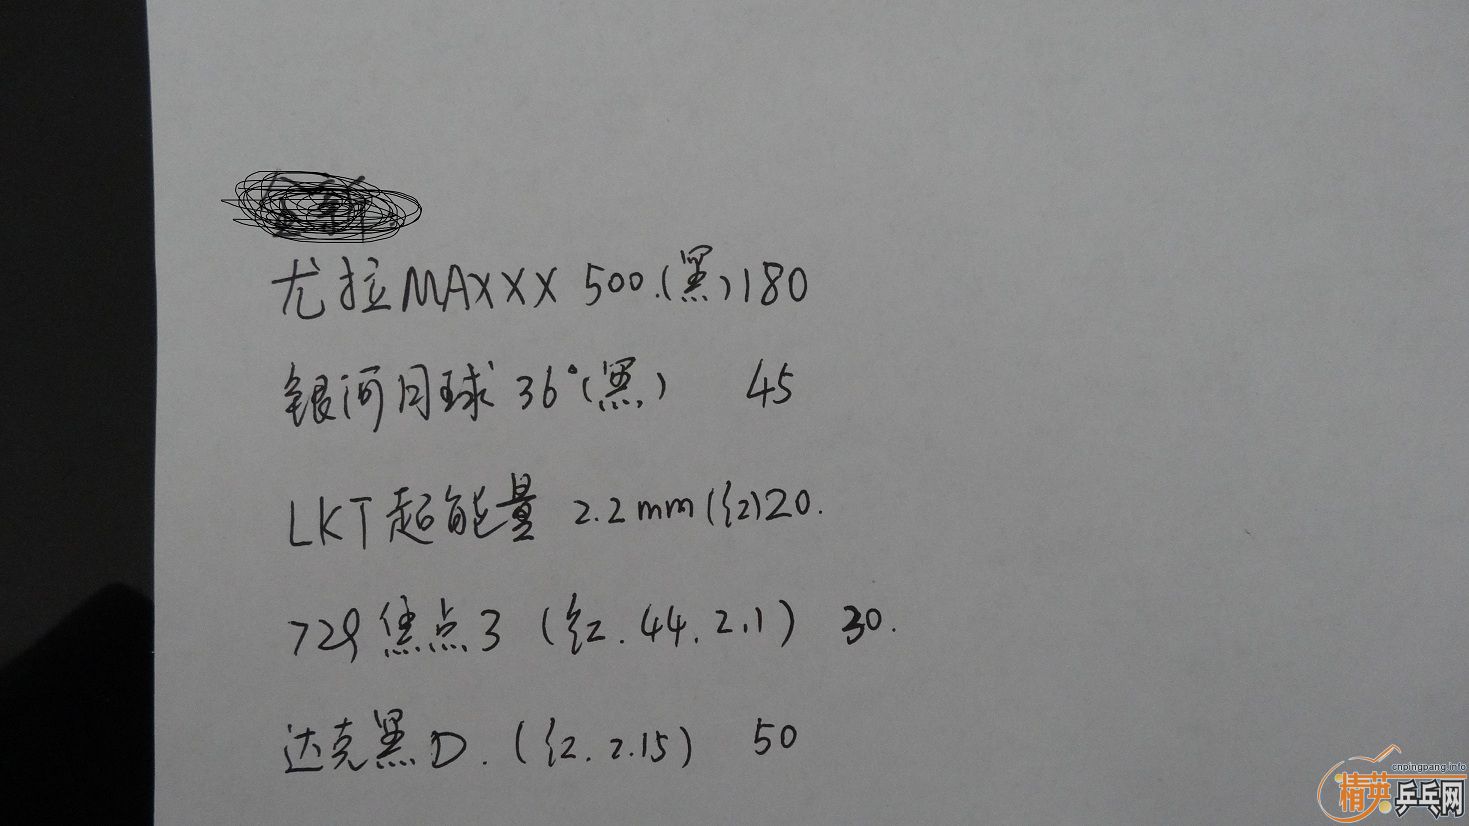 尤拉MAXXX 500.(黑)180
银河月球 36°(黑) 45
LKT超能量 2.2mm(红)20.
729焦点3 (红.44.2.1) 30.
达克黑D.(红.2.15) 50
cnpingpang.info
精英乒乓网